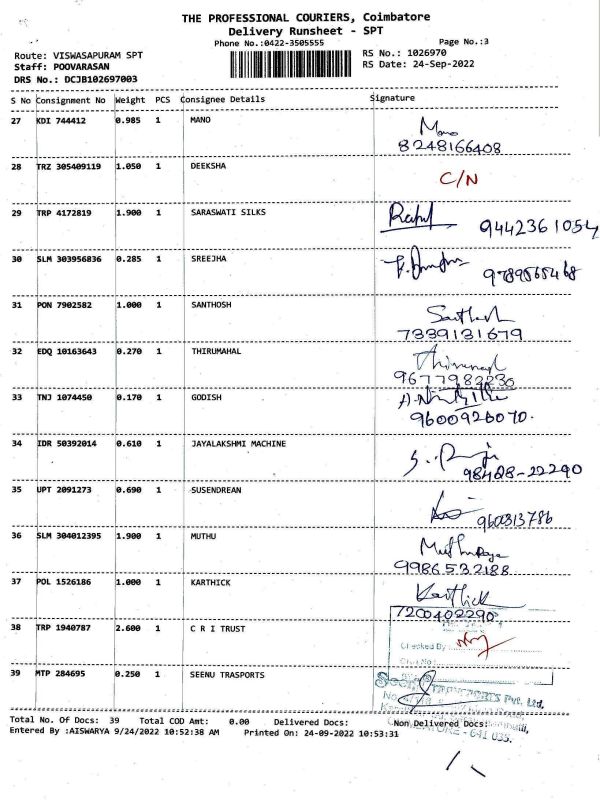 THE PROFESSIONAL COURIERS, Coimbatore
Delivery Runsheet - SPT
Phone No.:0422-3505555 Page No.:3
Route: VISWASAPURAM SPT RS No.: 1026970
Staff: POOVARASAN RS Date: 24-Sep-2022
DRS No.: DCJB102697003
S No Consignment No Weight PCS Consignee Details Signature
27 KDI 744412 0.985 1 MANO Mano
8248166408
28 TRZ 305409119 1.050 1 DEEKSHA C/N
29 TRP 4172819 1.900 1 SARASWATI SILKS Rahul 9442361054
30 SLM 303956836 0.285 1 SREEJHA
9789565468
31 PON 7902582 1.000 1 SANTHOSH Santhosh
7339131679
32 EDQ 10163643 0.270 1 THIRUMAHAL
9677982230
33 TNJ 1074450 0.170 1 GODISH
9600926070.
34 IDR 50392014 0.610 1 JAYALAKSHMI MACHINE
98428-22290
35 UPT 2091273 0.690 1 SUSENDREAN
960813786
36 SLM 304012395 1.900 1 MUTHU
9986532188
37 POL 1526186 1.000 1 KARTHICK Karthick
7200402290
38 TRP 1940787 2.600 1 C R I TRUST
Checked By
39 MTP 284695 0.250 1 SEENU TRASPORTS
TRANSPORTS Pvt. Ltd.
COIMBATORE - 641 035.
Total No. Of Docs: 39 Total COD Amt: 0.00 Delivered Docs: Non Delivered Docs:
Entered By :AISWARYA 9/24/2022 10:52:38 AM Printed On: 24-09-2022 10:53:31